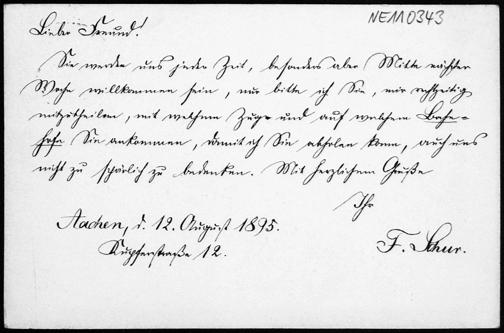 NE110343
Lieber Freund!
Sie werden uns jeder Zeit, besonders aber Mitte nächster
Woche willkommen sein, nur bitte ich Sie, mir rechtzeitig
mitzutheilen, mit welchem Zuge und auf welchem Bahn-
hofe Sie ankommen, damit ich Sie abholen kann, auch uns
nicht zu spärlich zu bedenken. Mit herzlichem Gruße
Ihr
F. Schur.
Aachen, d. 12. August 1895.
Kupferstraße 12.